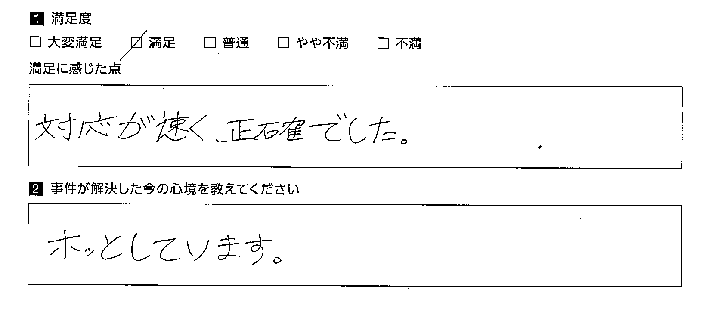 1 満足度
□ 大変満足 ☑ 満足 □ 普通 □ やや不満 □ 不満
満足に感じた点
対応が速く、正確でした。
2 事件が解決した今の心境を教えてください
ホッとしています。